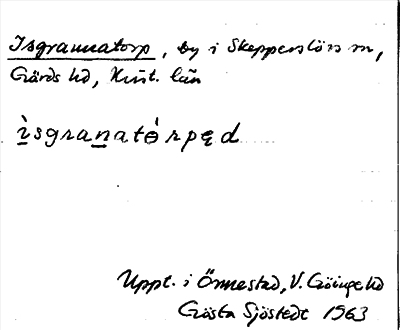 Isgrannatorp, by i Skepperslövs sn,
Gärds hd, Krist. län
ìsgranatórpęd
Uppt. i Önnestad, V. Göinge hd
Gösta Sjöstedt 1963